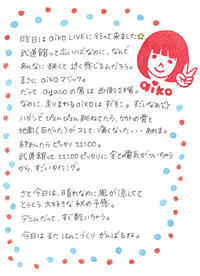 昨日は aiko LIVEに行って来ました☆
武道館って広いハズなのに、なんで
あんなに狭くて近く感じるんだろう。
まさに aikoマジック。
だって ayacoの席は西側2階。
なのに、走りまわるaikoは すぐそこ。すごいなぁ
ハダシで ぴょんぴょん跳ねてたら、カカトの骨と
地面（石だった）がズレして、痛くなった・・・あれま。
終わったらピッタリ 22:00
武道館って 22:00ピッタリに全ての電気がついちゃう
から、すごいタイミング。
さて今日は、晴れなのに風が涼しくて
とうとう大好きな秋の予感。
デニムだって、すぐ乾いちゃう。
今日は また はんこづくり がんばるよね。
aiko